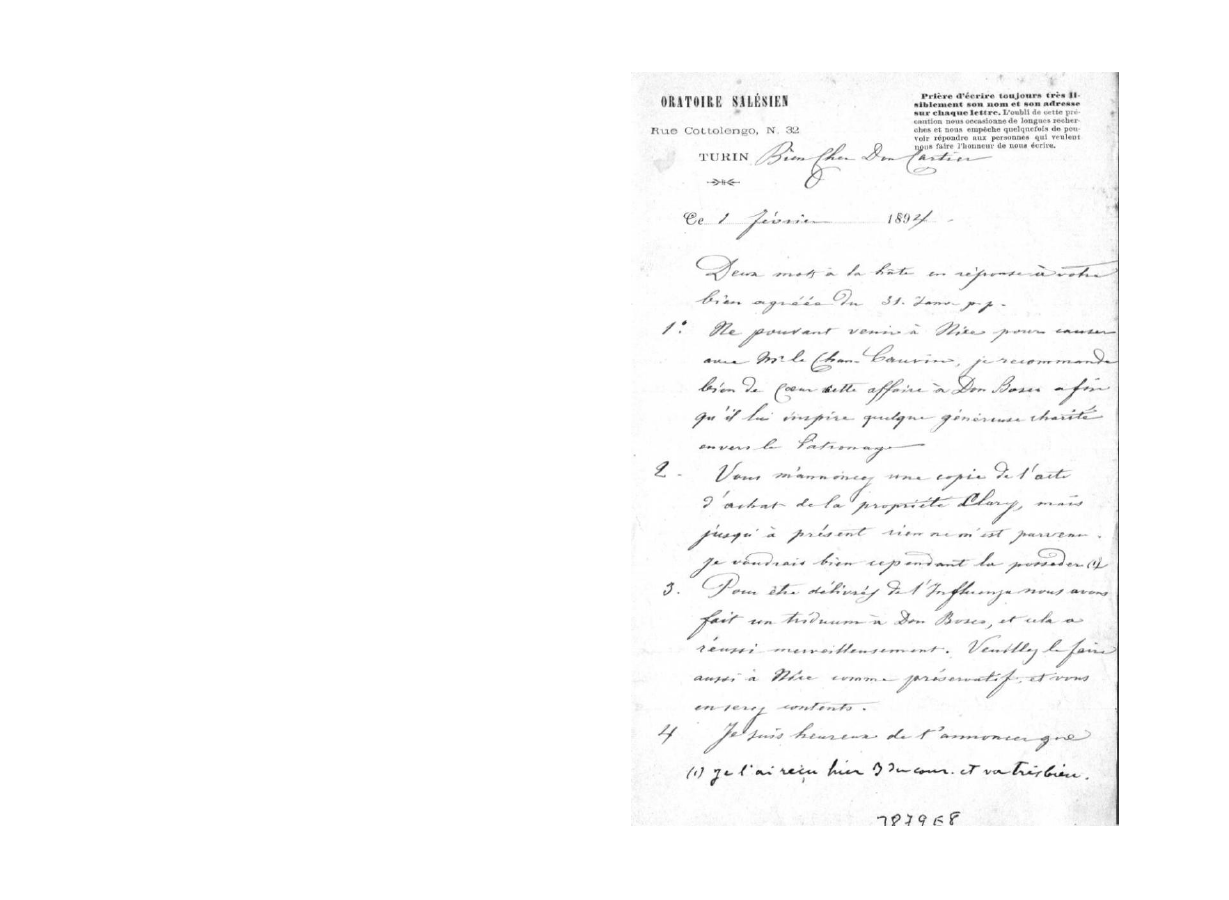 ORATOIRE SALÉSIEN
Rue Cottolengo, N. 32
TURIN
Prière d'écrire toujours très li-
siblement son nom et son adresse
sur chaque lettre. L'oubli de cette pré-
caution nous occasionne de longues recher-
ches et nous empêche quelquefois de pou-
voir répondre aux personnes qui veulent
nous faire l'honneur de nous écrire.
Bien Cher Don Cartier
Ce 1 février 1894
Deux mots à la hâte en réponse à votre
bien agréée du 31. Janv. p.p.
1° Ne pouvant venir à Nice pour causer
avec Mr le Chan. Cauvin, je recommande
bien de Cœur cette affaire à Don Bosco afin
qu'il lui inspire quelque généreuse charité
envers le Patronage
2. Vous m'annoncez une copie de l'acte
d'achat de la propriété Clary, mais
jusqu'à présent rien ne m'est parvenu.
je voudrais bien cependant la posséder (1)
3. Pour être délivrés de l'Influenza nous avons
fait un triduum à Don Bosco, et cela a
réussi merveilleusement. Veuillez le faire
aussi à Nice comme préservatif, et vous
en serez contents.
4 Je suis heureux de t'annoncer que
(1) je l'ai reçu hier 3 du cour. et va très bien.
787968